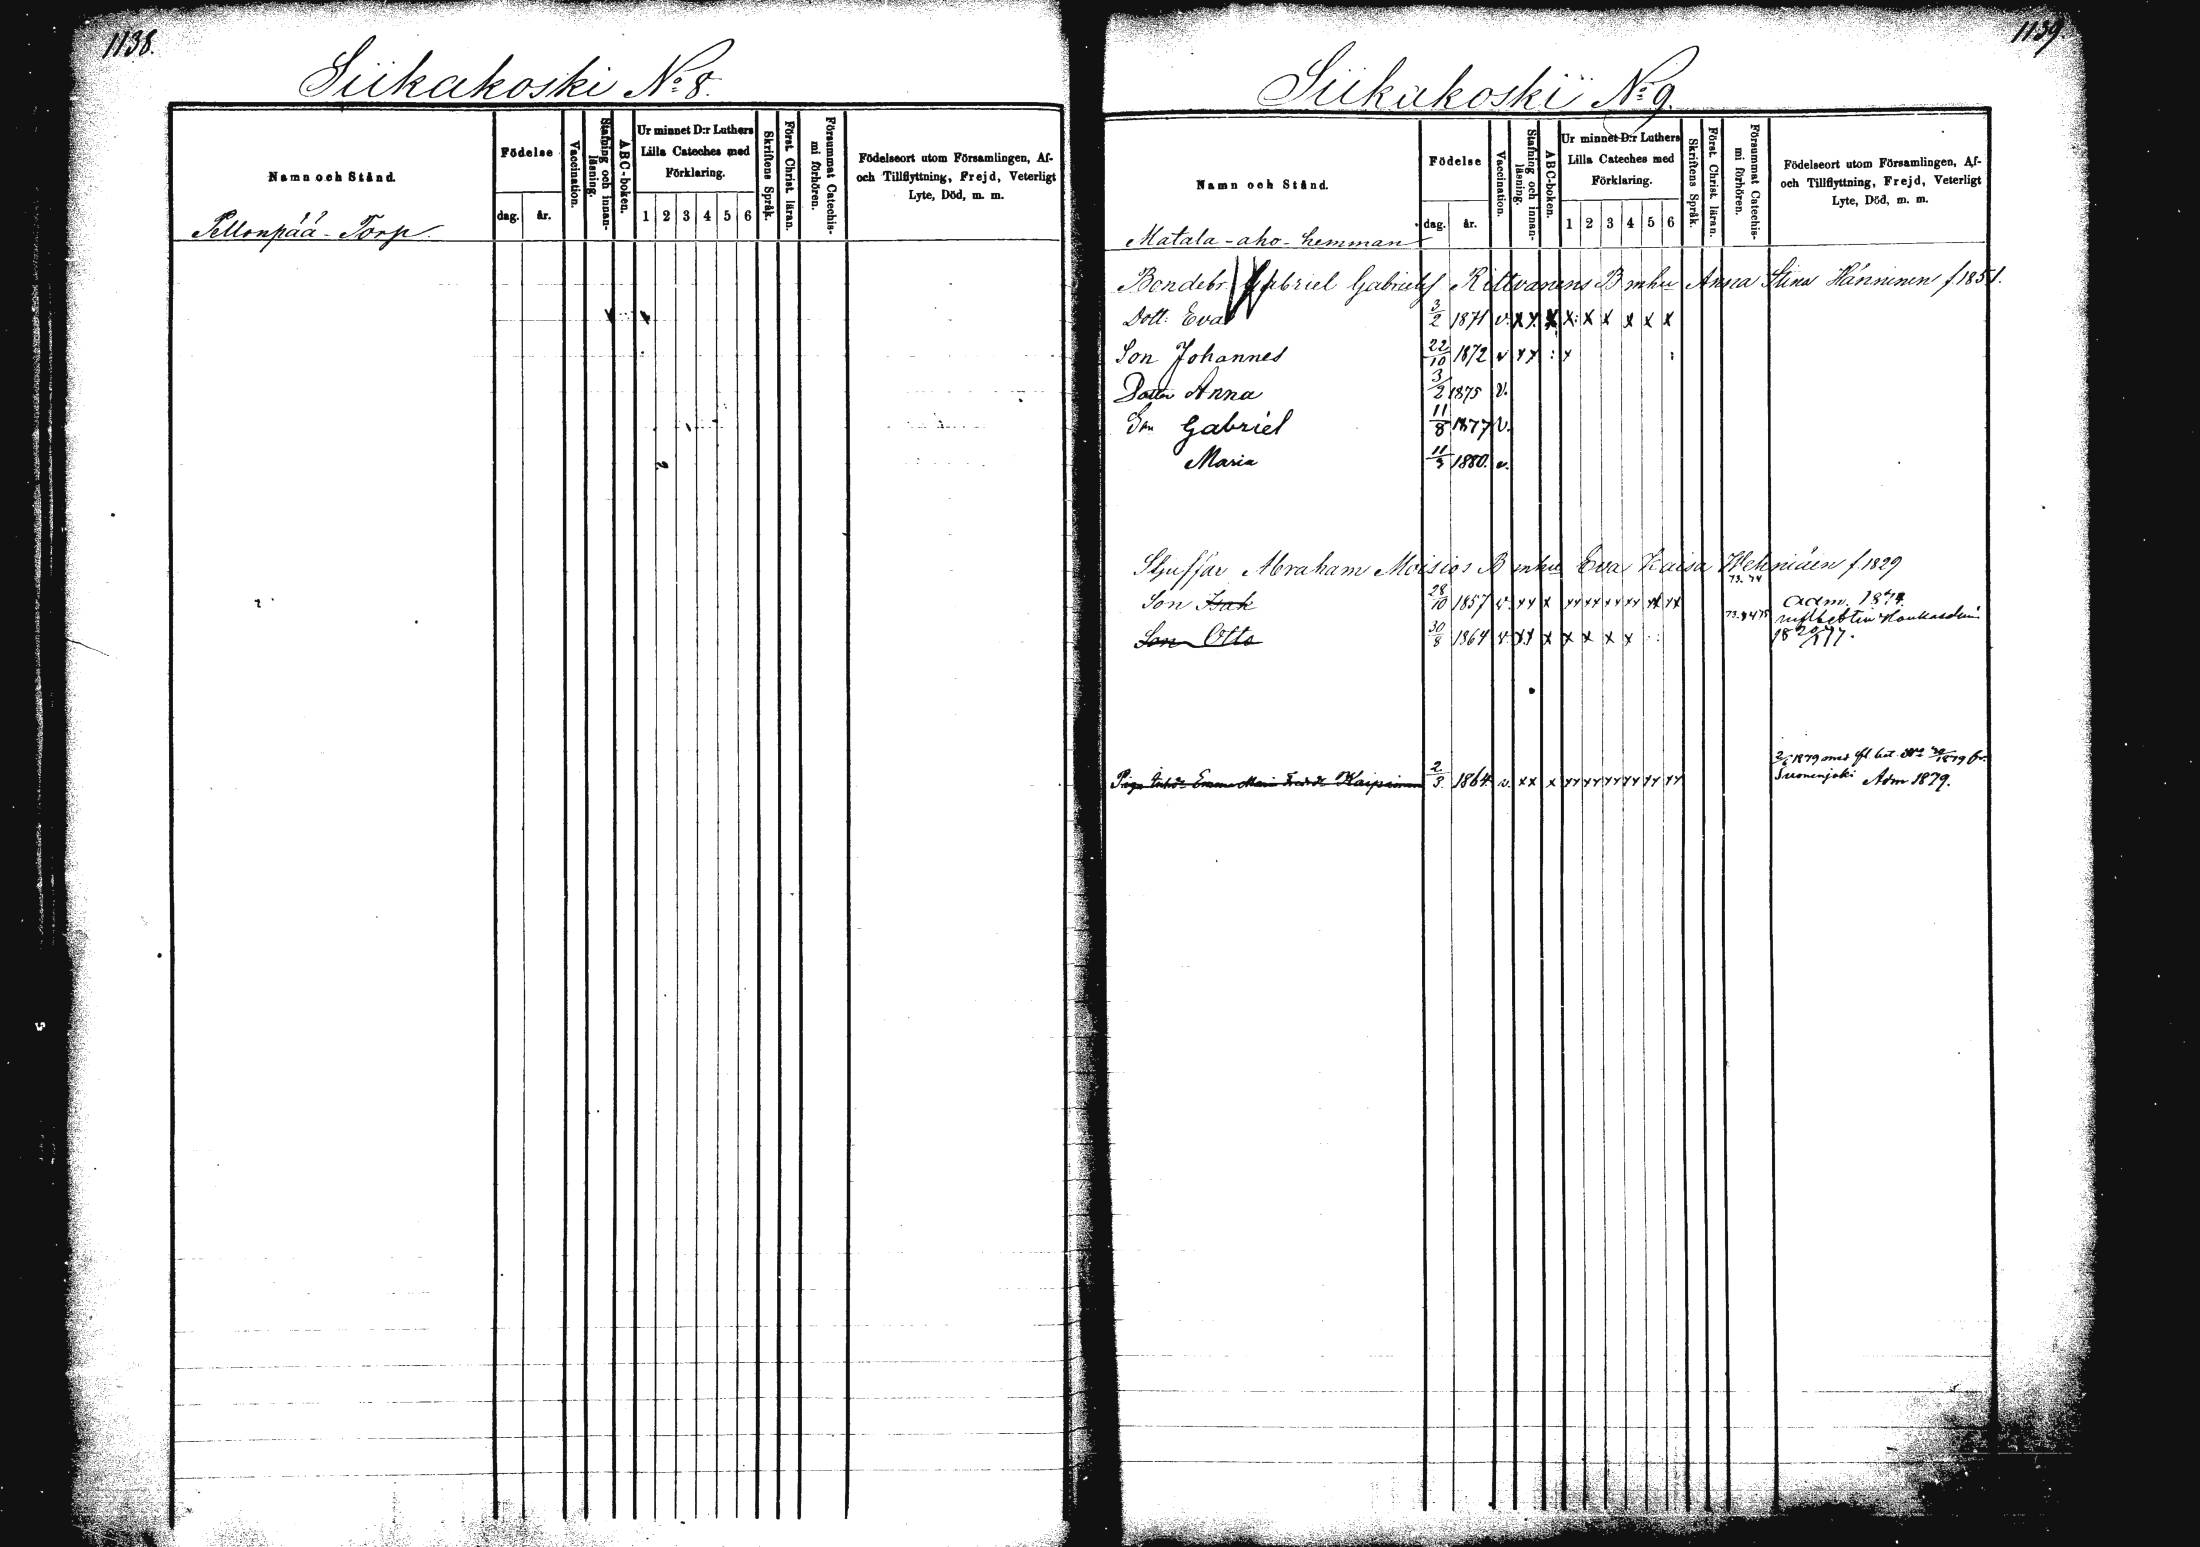 1138.
Siikakoski No 8.
Namn och Stånd.
Födelse
dag. år.
Vaccination.
Stafning och innan-
läsning.
ABC-boken.
Ur minnet D:r Luthers
Lilla Cateches med
Förklaring.
1 2 3 4 5 6
Skriftens Språk.
Först. Christ. läran.
Försummat Catechis-
mi förhören.
Födelseort utom Församlingen, Af-
och Tillflyttning, Frejd, Veterligt
Lyte, Död, m. m.
Pellonpää - Torp.
1139.
Siikakoski No 9.
Namn och Stånd.
Födelse
dag. år.
Vaccination.
Stafning och innan-
läsning.
ABC-boken.
Ur minnet D:r Luthers
Lilla Cateches med
Förklaring.
1 2 3 4 5 6
Skriftens Språk.
Först. Christ. läran.
Försummat Catechis-
mi förhören.
Födelseort utom Församlingen, Af-
och Tillflyttning, Frejd, Veterligt
Lyte, Död, m. m.
Matala-aho-hemman
Bondebr. Gabriel Gabrielsf Rittvanens B mhu Anna Stina Hänninen f 1851.
Dott. Eva 3/2 1871 v. x x. x x: x x x x x
Son Johannes 22/10 1872 v x x : x :
Dotter Anna 3/2 1875 v.
Son Gabriel 11/8 1877 v.
Maria 11/3 1880. v.
Styffar Abraham Moisios B mhu Eva Kaisa f 1829
73. 74
Son Isak 28/10 1857 v. xx x xx xx xx xx xx xx adm. 1874.
Son Otto 30/8 1864 v. xx x x x x x
1879 Suonenjoki
Piga Emma Maria 2/3 1864. v. xx x xx xx xx xx xx xx Adm 1879.